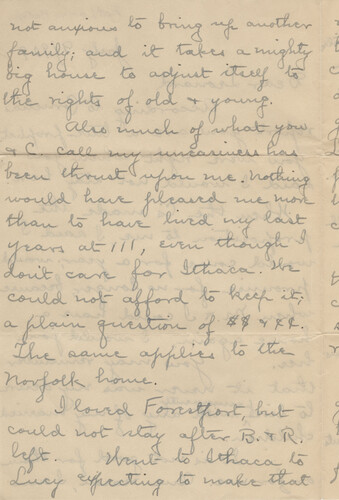 not anxious to bring up another
family; and it takes a mighty
big house to adjust itself to
the rights of old & young.
Also much of what you
& C. call my uneasiness has
been thrust upon me. Nothing
would have pleased me more
than to have lived my last
years at 111, even though I
don't care for Ithaca. We
could not afford to keep it;
a plain question of $$ & ¢¢.
The same applies to the
Norfolk home.
I loved Forestport, but
could not stay after B. & R.
left. Went to Ithaca to
Lucy expecting to make that